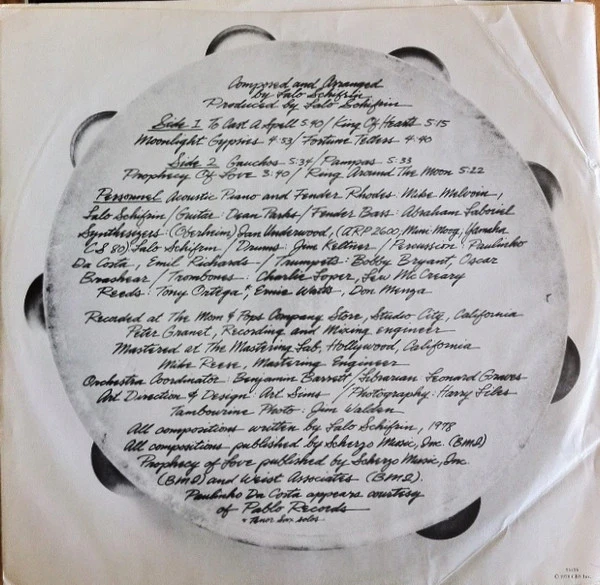 Composed and Arranged
by Lalo Schifrin
Produced by Lalo Schifrin
Side 1 To Cast A Spell 5:40 / King Of Hearts 5:15
Moonlight Gypsies 4:53 / Fortune Tellers 4:40
Side 2 Gauchos - 5:34 / Pampas 5:33
Prophecy Of Love 3:40 / Ring Around The Moon 5:22
Personnel Acoustic Piano and Fender Rhodes: Mike Melvoin,
Lalo Schifrin / Guitar: Dean Parks / Fender Bass: Abraham Laboriel
Synthesizers: (Oberheim) Ian Underwood, (ARP 2600, Mini Moog, Yamaha
CS 80) Lalo Schifrin / Drums: Jim Keltner / Percussion: Paulinho
Da Costa, Emil Richards / Trumpets: Bobby Bryant, Oscar
Brashear / Trombones: Charlie Loper, Lew McCreary
Reeds: Tony Ortega*, Ernie Watts, Don Menza
Recorded at The Mom & Pops Company Store, Studio City, California
Peter Granet, Recording and Mixing engineer
Mastered at The Mastering Lab, Hollywood, California
Mike Reese, Mastering Engineer
Orchestra Coordinator: Benjamin Barrett / Librarian Leonard Graves
Art Direction & Design: Art Sims / Photography: Harry Files
Tambourine Photo: Jim Walden
All compositions written by Lalo Schifrin, 1978
All compositions published by Scherzo Music, Inc. (BMI)
Prophecy of Love published by Scherzo Music, Inc.
(BMI) and Weist Associates (BMI).
Paulinho Da Costa appears courtesy
of Pablo Records
* Tenor Sax solos